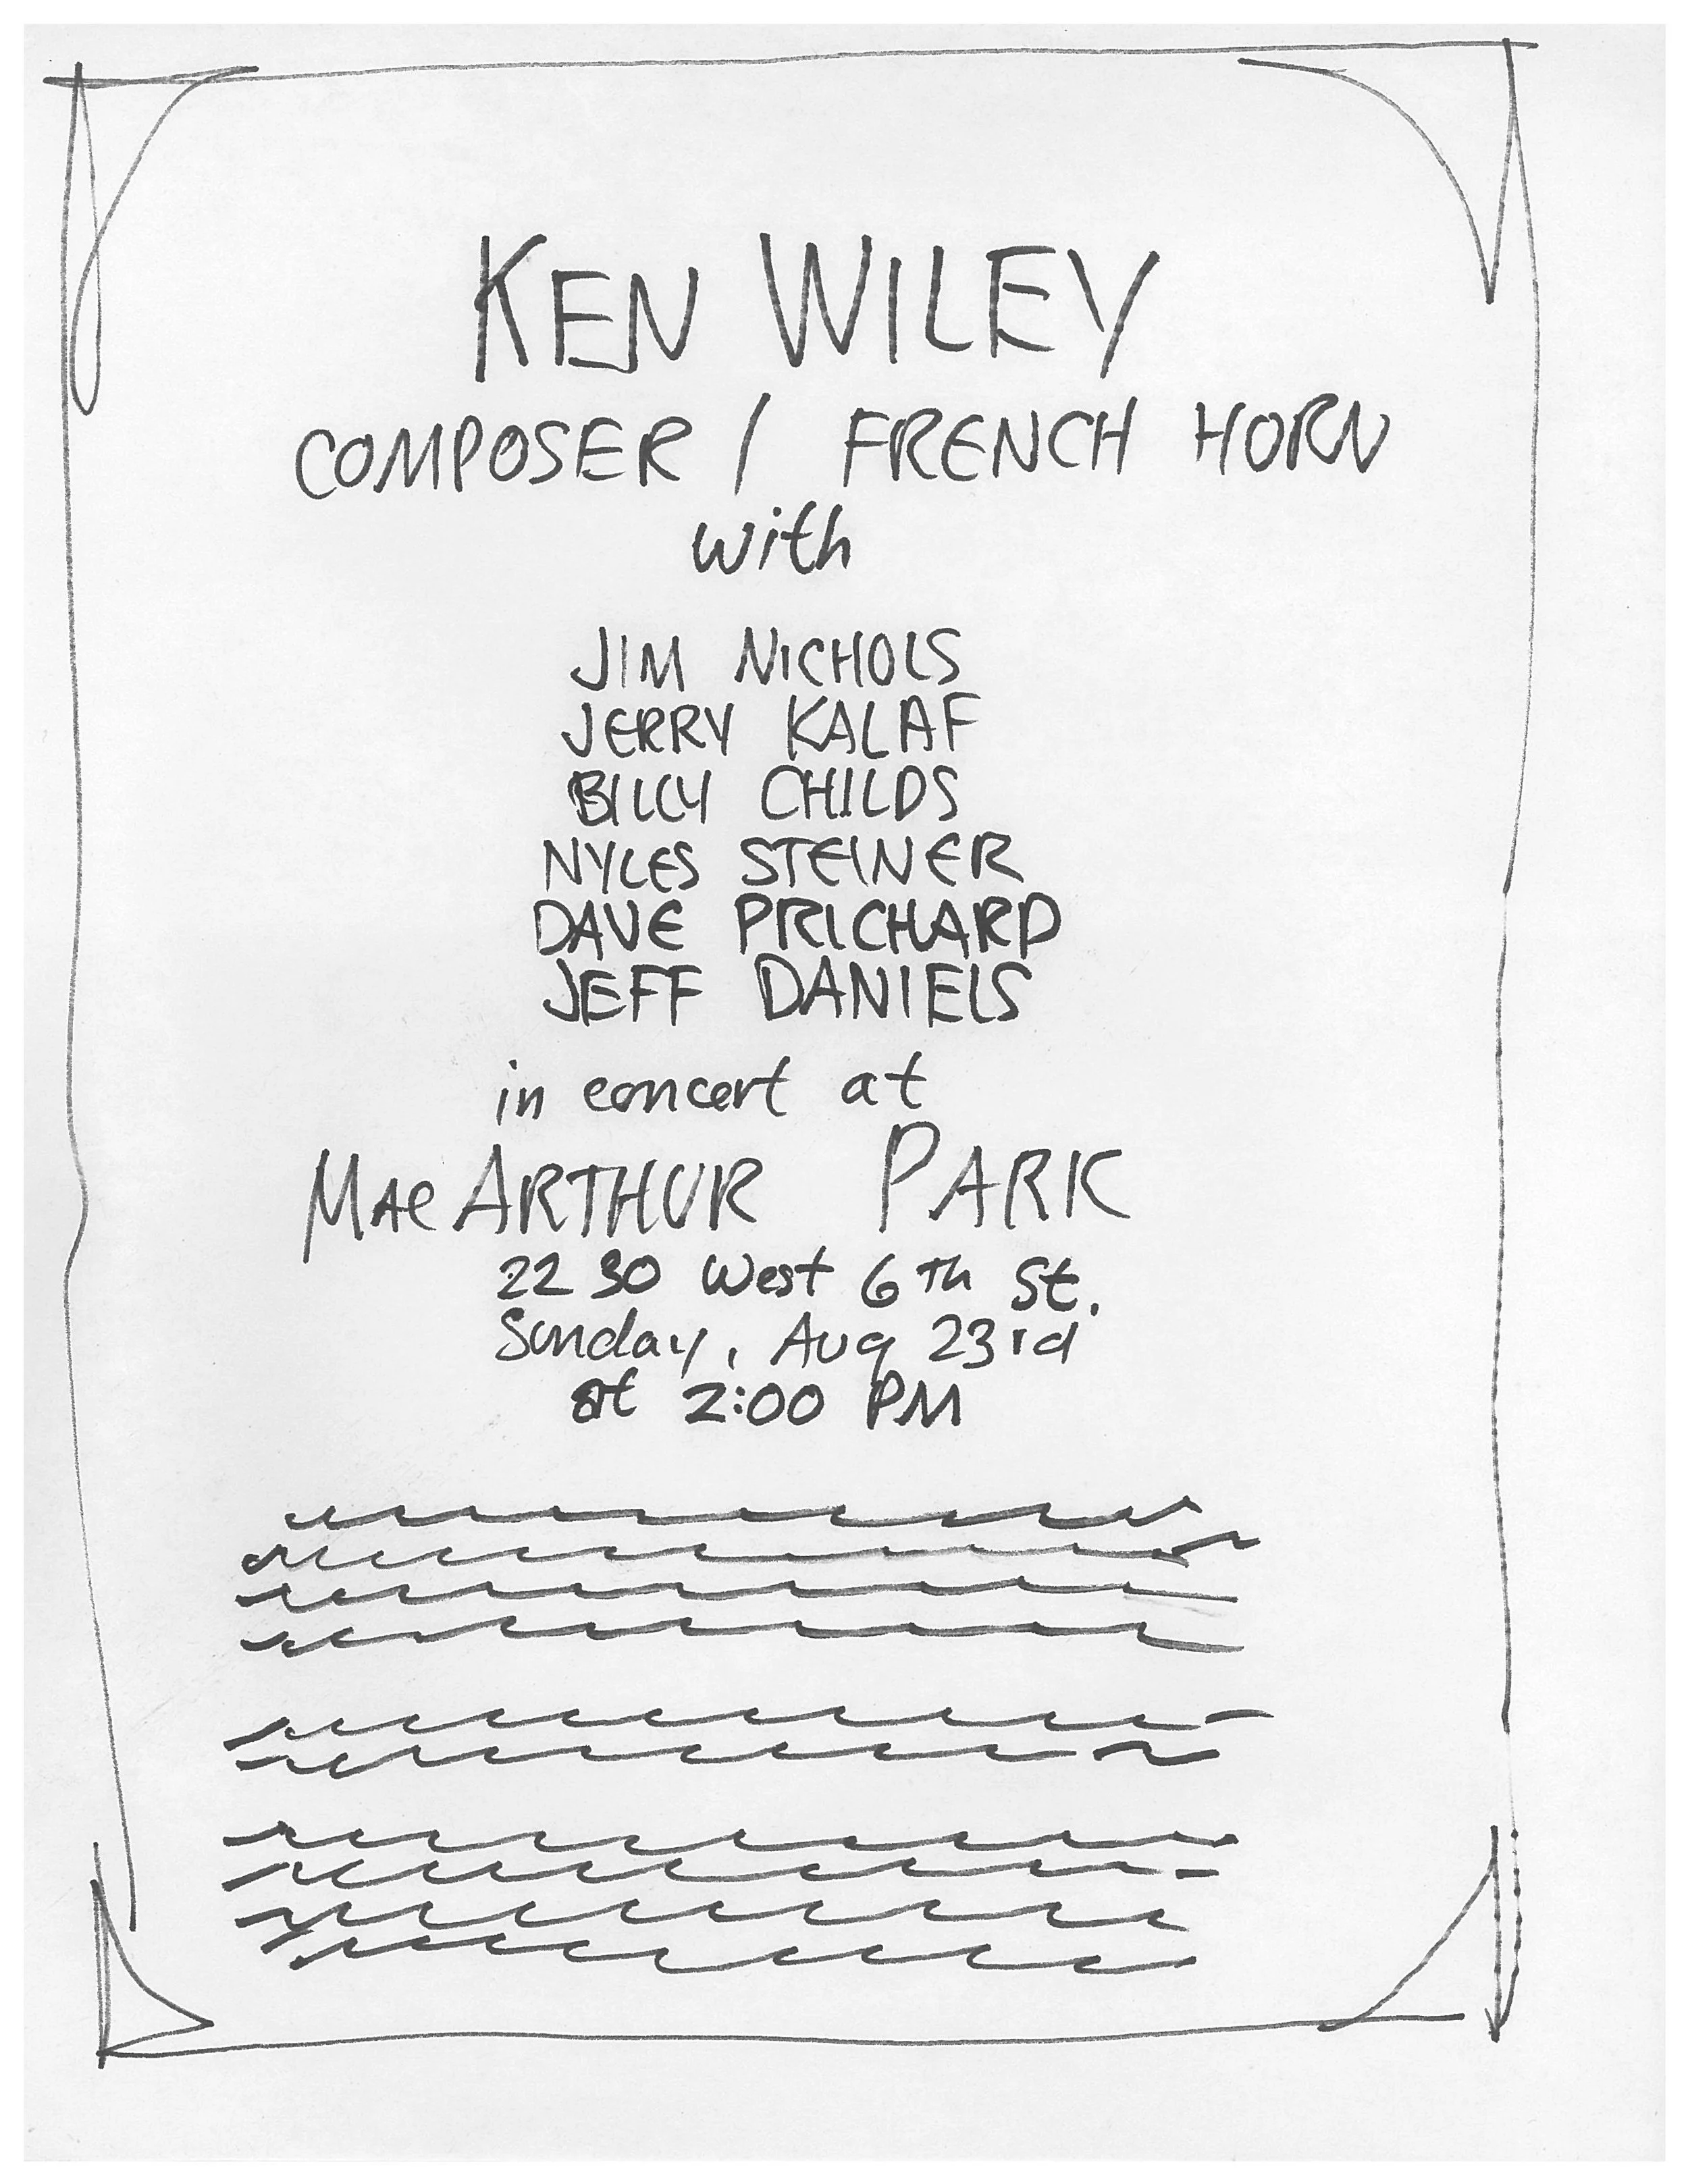 KEN WILEY
COMPOSER / FRENCH HORN
with
JIM NICHOLS
JERRY KALAF
BILLY CHILDS
NYLES STEINER
DAVE PRICHARD
JEFF DANIELS
in concert at
MacARTHUR PARK
2230 West 6TH St.
Sunday, Aug 23rd
at 2:00 PM